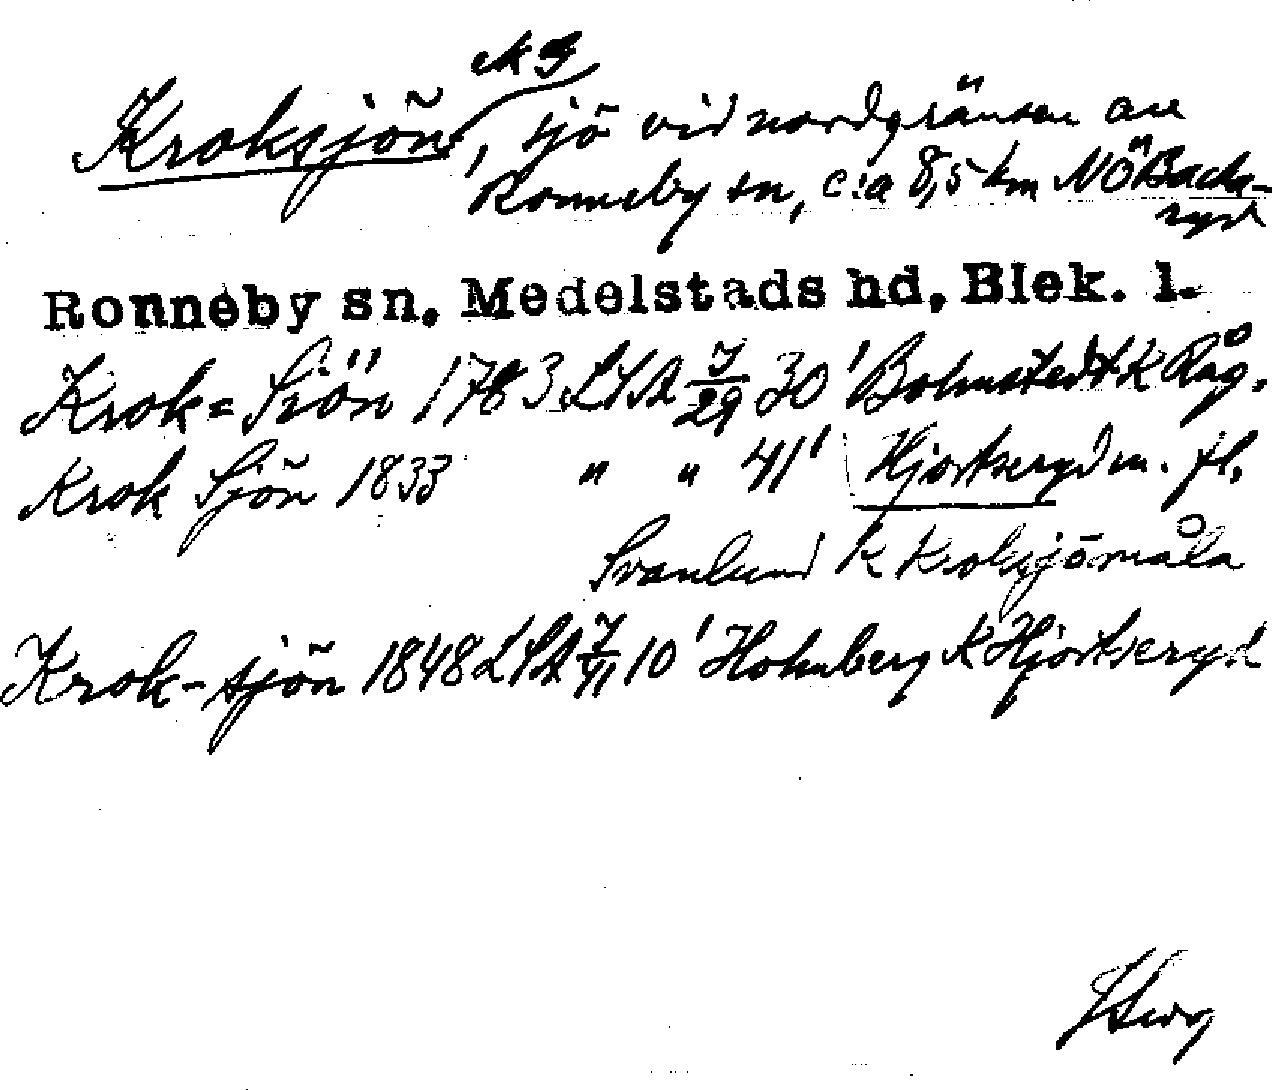 Kroksjön, sjö vid nordgränsen av
Ronneby sn, c:a 8,5 km NÖ Backa-
ryd
Ronneby sn. Medelstads hd, Blek. l.
Krok= Siön 1783 LSA 7/29 30' Bohnstedt K Råg.
Krok Sjön 1833 " " 41' Hjortseryd m. fl.
Svanlund K Kroksjömåla
Krok-sjön 1848 LSA 7/41 10' Holmberg K Hjortseryd